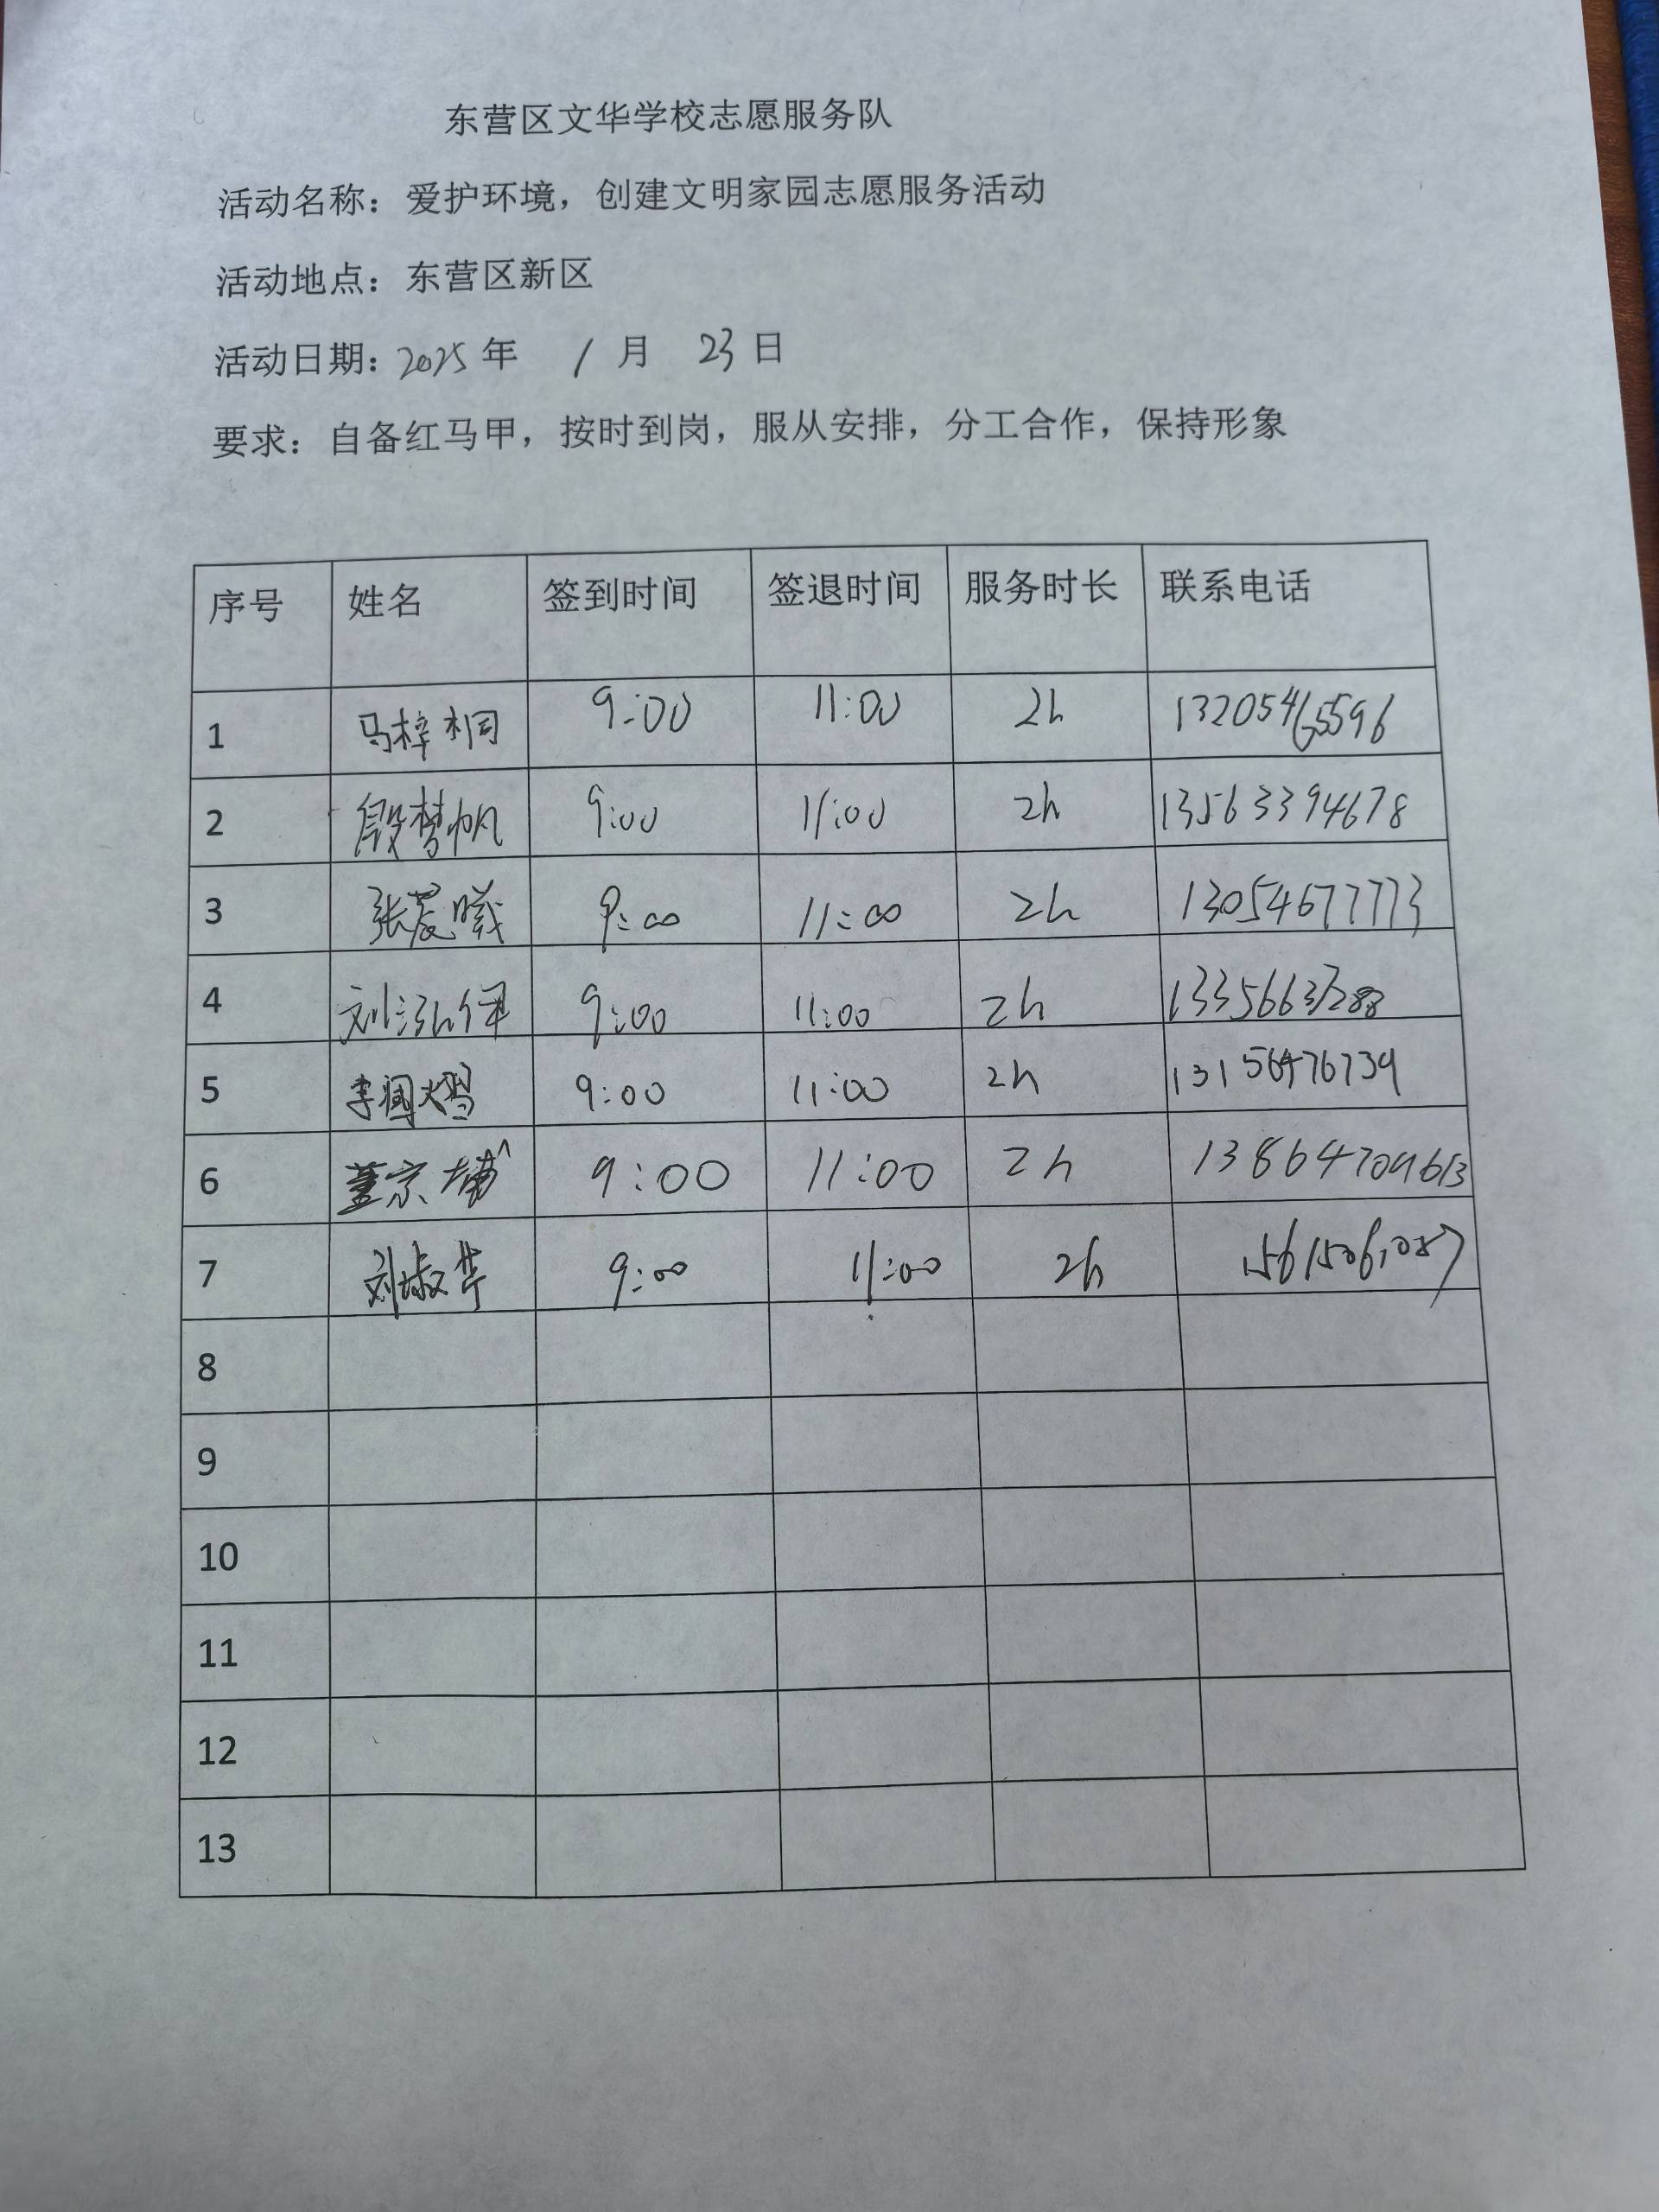 东营区文华学校志愿服务队
活动名称：爱护环境，创建文明家园志愿服务活动
活动地点：东营区新区
活动日期：2025 年 1 月 23 日
要求：自备红马甲，按时到岗，服从安排，分工合作，保持形象
序号 姓名 签到时间 签退时间 服务时长 联系电话
1 马梓桐 9:00 11:00 2h 13205465596
2 殷梦帆 9:00 11:00 2h 13563394678
3 张晨曦 9:00 11:00 2h 13054677773
4 9:00 11:00 2h
5 9:00 11:00 2h 13156476739
6 9:00 11:00 2h
7 刘淑华 9:00 11:00 2h
8
9
10
11
12
13